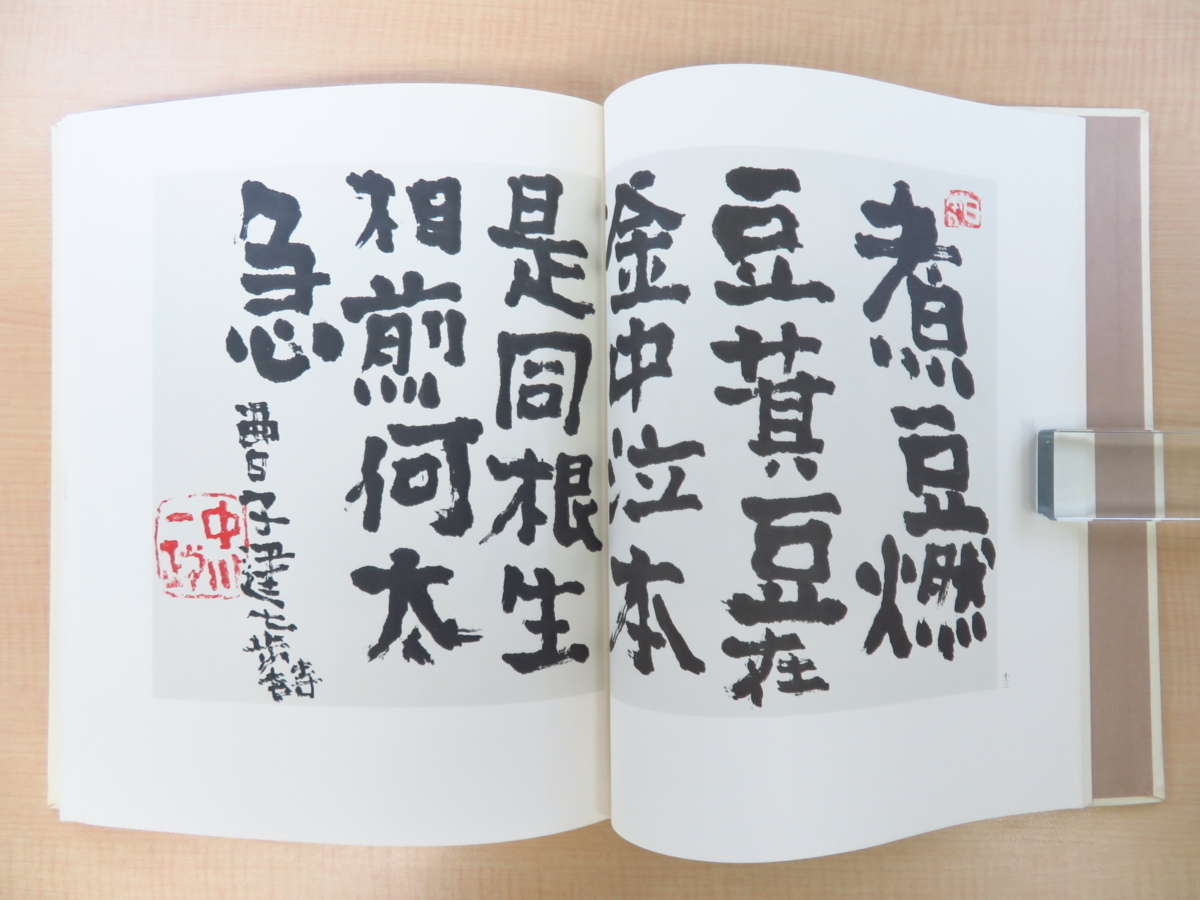 煮豆燃
豆萁豆在
釜中泣本
是同根生
相煎何太
急
曹子建七歩詩
中川一政
十二